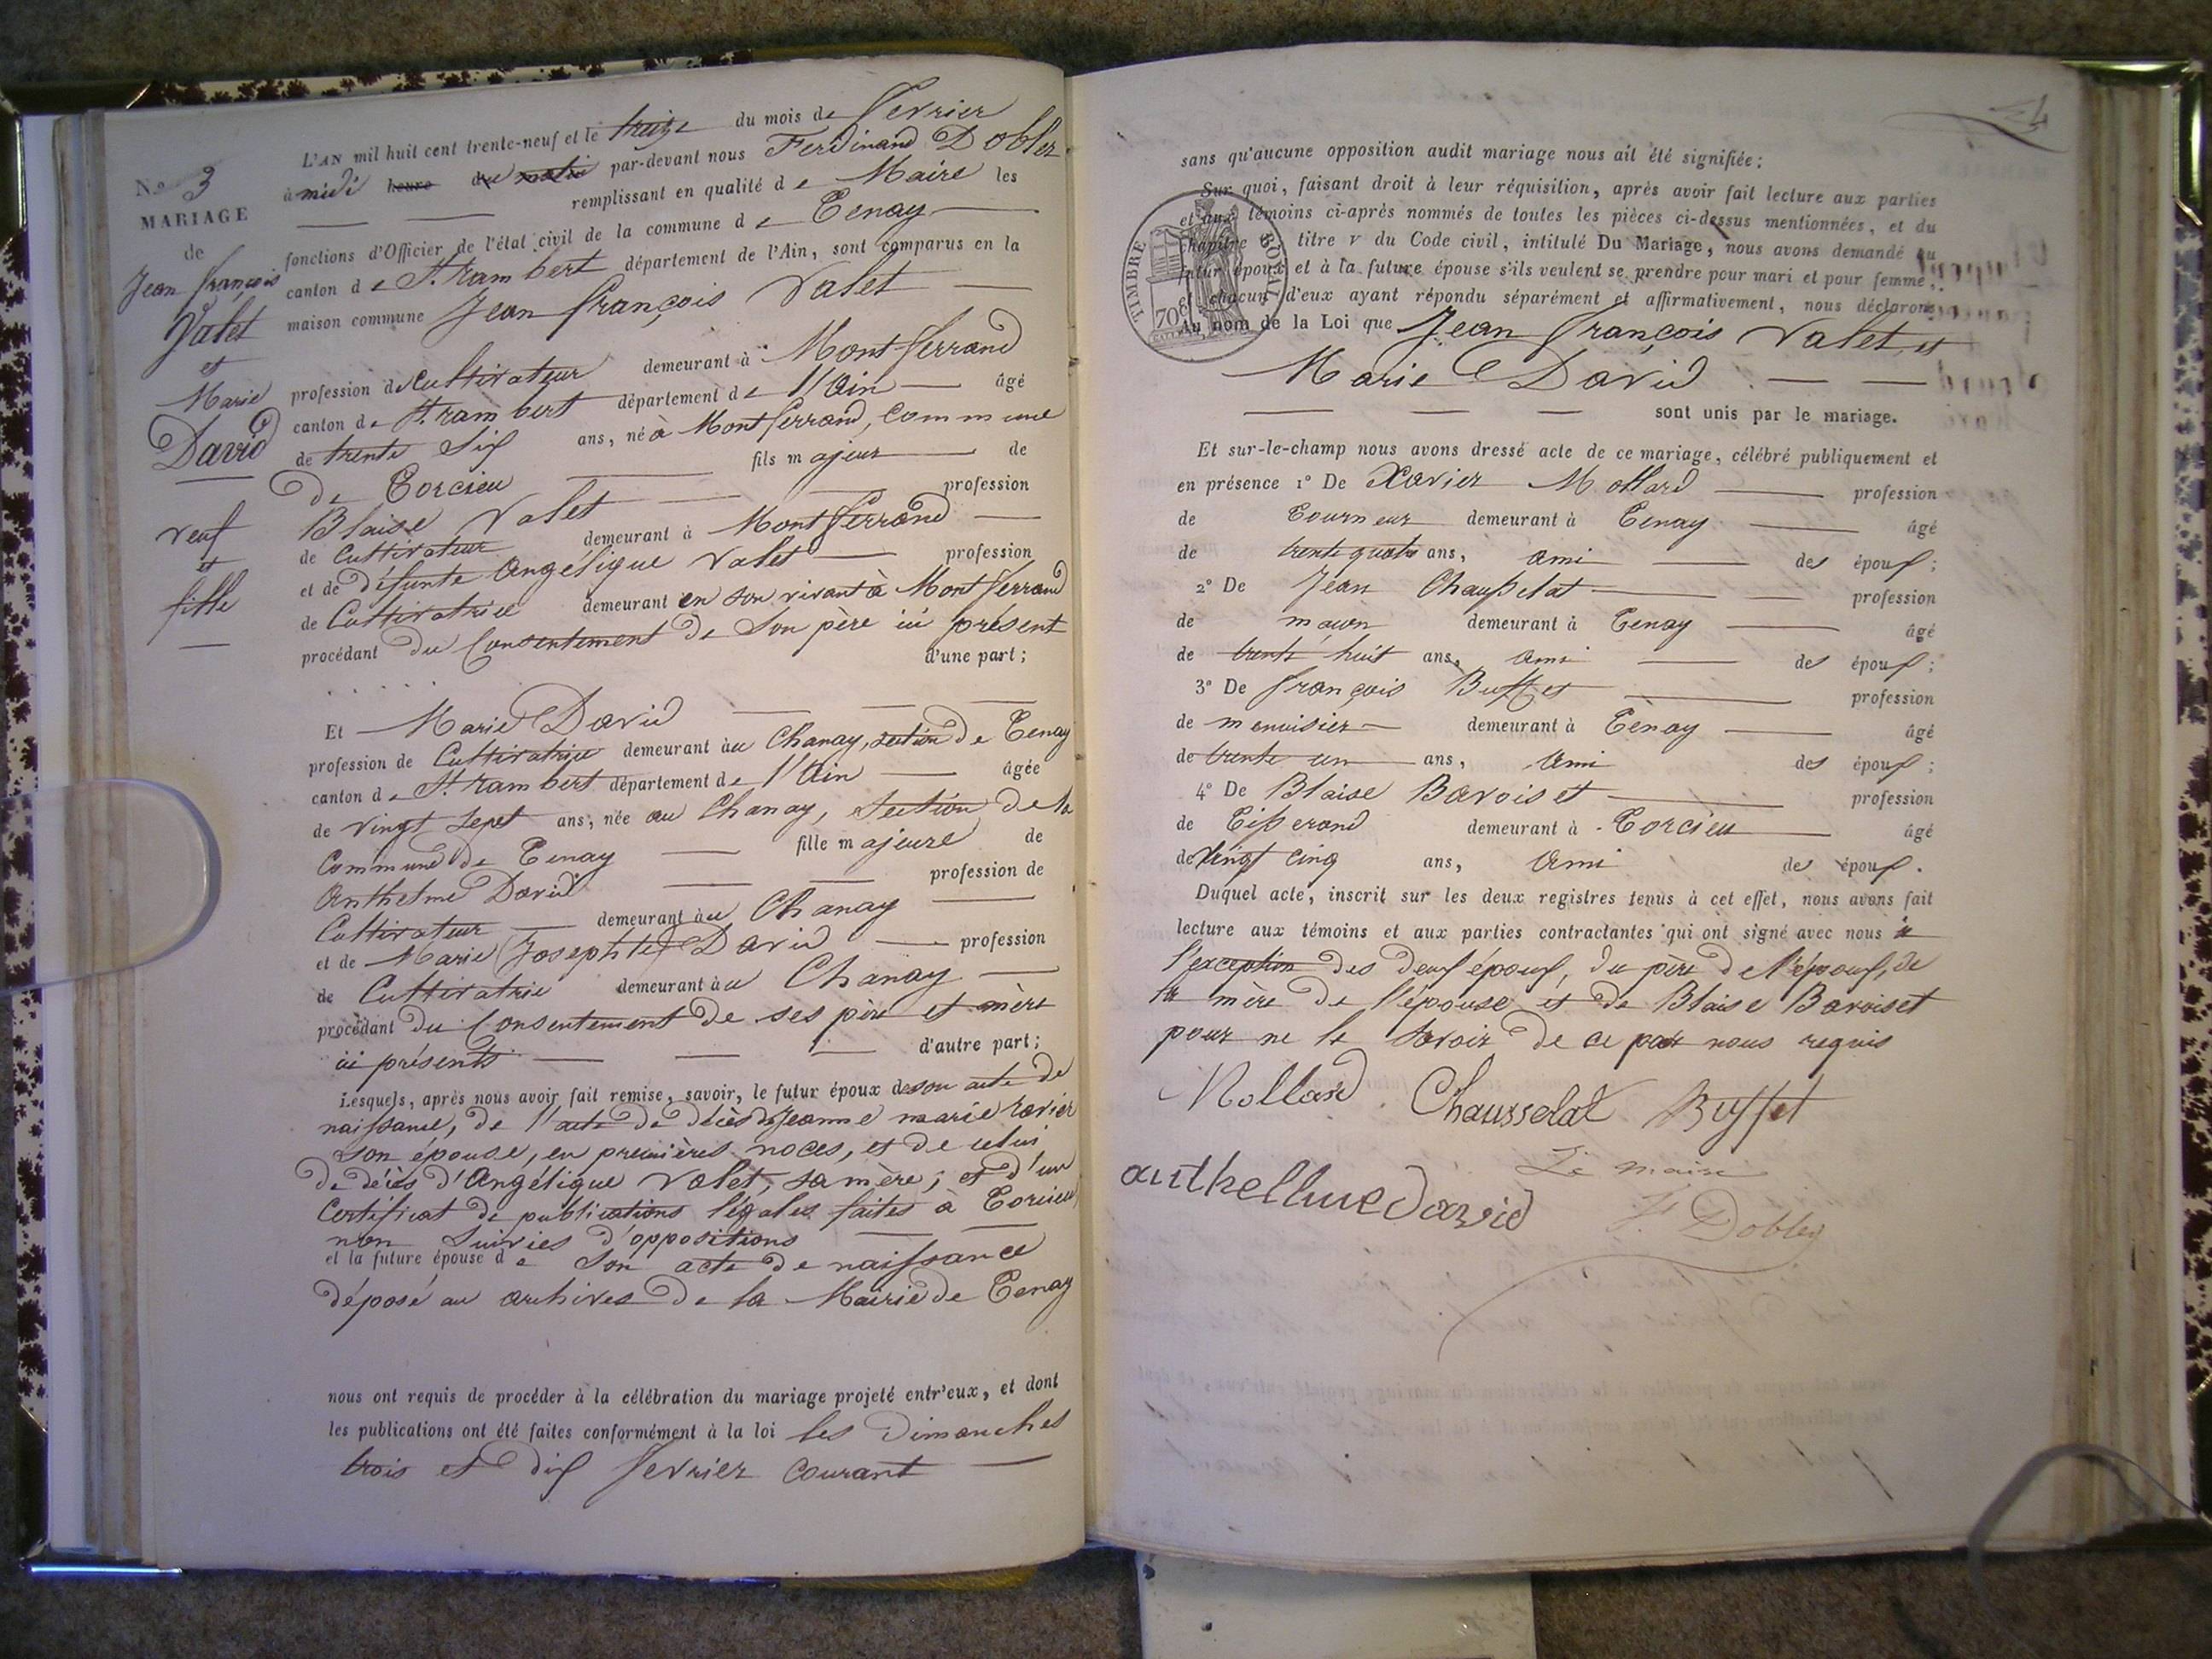 N.o 3
MARIAGE
de
Jean françois
Valet
et
Marie
David
veuf
et
fille
L'AN mil huit cent trente-neuf et le treize du mois de fevrier
à midi heure du matin par-devant nous Ferdinand Dobler
remplissant en qualité de Maire les
fonctions d'Officier de l'état civil de la commune de Tenay
canton de St. rambert département de l'Ain, sont comparus en la
maison commune Jean françois Valet
profession de Cultivateur demeurant à Montferrand
canton de St. rambert département de l'Ain âgé
de trente Six ans, né à Montferrand, Commune
de Torcieu fils majeur de
Blaise Valet profession
de Cultivateur demeurant à Montferrand
et de défunte Angélique Valet profession
de Cultivatrice demeurant en son vivant à Montferrand
procédant du Consentement de Son père ici présent
d'une part;
Et Marie David
profession de Cultivatrice demeurant au Chanay, section de Tenay
canton de St. rambert département de l'Ain âgée
de vingt Sept ans, née au Chanay, Section de la
Commune de Tenay fille majeure de
Anthelme David profession de
Cultivateur demeurant au Chanay
et de Marie Josephte David profession
de Cultivatrice demeurant au Chanay
procédant du Consentement de ses père et mère
ici présents d'autre part;
Lesquels, après nous avoir fait remise, savoir, le futur époux de son acte de
naissance, de l'acte de décès de Jeanne marie ravier
son épouse, en premières noces, et de celui
de décès d'Angélique Valet, sa mère; et d'un
Certificat de publications légales faites à Torcieu
non Suivies d'oppositions
et la future épouse de Son acte de naissance
déposé au archives de la Mairie de Tenay
nous ont requis de procéder à la célébration du mariage projeté entr'eux, et dont
les publications ont été faites conformément à la loi les Dimanches
trois et dix fevrier courant
sans qu'aucune opposition audit mariage nous ait été signifiée;
Sur quoi, faisant droit à leur réquisition, après avoir fait lecture aux parties
et aux témoins ci-après nommés de toutes les pièces ci-dessus mentionnées, et du
chapitre titre V du Code civil, intitulé Du Mariage, nous avons demandé au
futur époux et à la future épouse s'ils veulent se prendre pour mari et pour femme;
et chacun d'eux ayant répondu séparément et affirmativement, nous déclarons
Au nom de la Loi que Jean françois Valet, et
Marie David
sont unis par le mariage.
TIMBRE ROYAL
70c
Et sur-le-champ nous avons dressé acte de ce mariage, célébré publiquement et
en présence 1° De Xavier Mollard profession
de Tourneur demeurant à Tenay âgé
de trente quatre ans, ami des époux;
2° De Jean Chausselat profession
de maçon demeurant à Tenay âgé
de trente huit ans, ami des époux;
3° De françois Buffet profession
de menuisier demeurant à Tenay âgé
de trente un ans, ami des époux;
4° De Blaise Bavoiset profession
de Tisserand demeurant à Torcieu âgé
de Vingt cinq ans, ami des époux.
Duquel acte, inscrit sur les deux registres tenus à cet effet, nous avons fait
lecture aux témoins et aux parties contractantes qui ont signé avec nous à
l'exception des deux époux, du père de l'époux, de
la mère de l'épouse et de Blaise Bavoiset
pour ne le Savoir de ce par nous requis
Mollard Chausselat Buffet
Le maire
authellme david F. Dobler